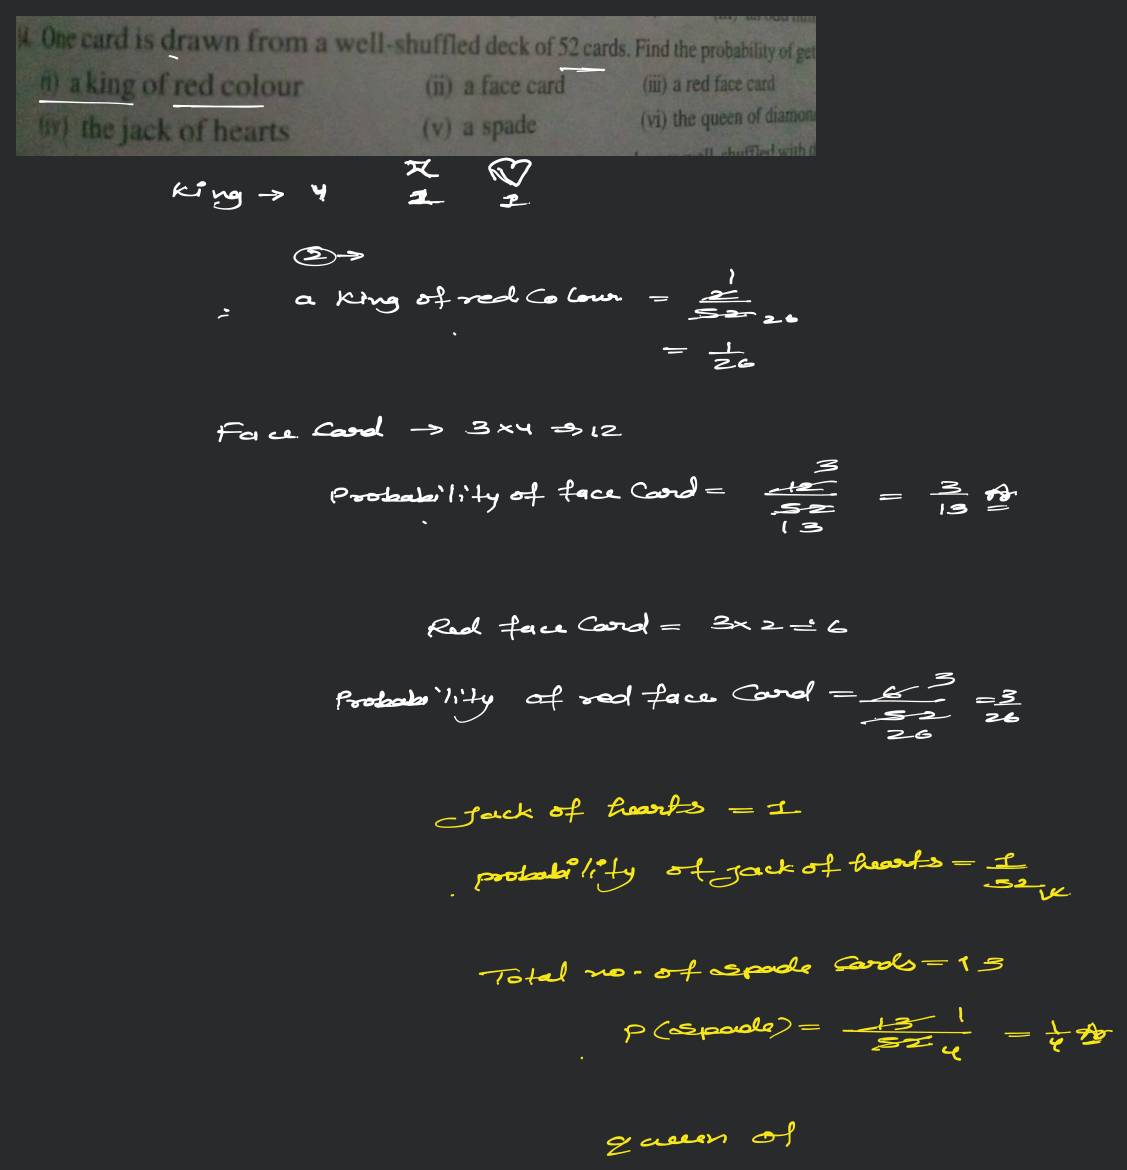 4. One card is drawn from a well-shuffled deck of 52 cards. Find the probability of get
(i) a king of red colour (ii) a face card (iii) a red face card
(iv) the jack of hearts (v) a spade (vi) the queen of diamon
King → 4 1 1
② →
a King of red Colour = 2/52 1 26
= 1/26
Face Card → 3×4 ⇒ 12
Probability of face Card = 12/52 3 13 = 3/13
Red face Card = 3×2 = 6
Probability of red face Card = 6/52 3 26 = 3/26
Jack of hearts = 1
probability of jack of hearts = 1/52
Total no. of spade Cards = 13
P(spade) = 13/52 1 4 = 1/4
queen of